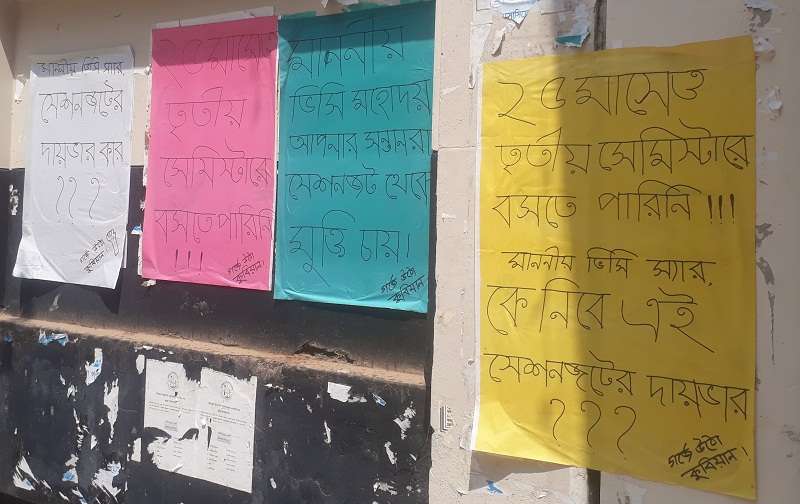 মাননীয় ভিসি স্যার,
সেশনজটের
দায়ভার কার
???
গর্জে উঠো
কুবিয়ান!
২৫ মাসেও
তৃতীয়
সেমিস্টারে
বসতে পারিনি
!!!
গর্জে উঠো
কুবিয়ান!
মাননীয়
ভিসি মহোদয়
আপনার সন্তানরা
সেশনজট থেকে
মুক্তি চায়!
গর্জে উঠো
কুবিয়ান!
২৫ মাসেও
তৃতীয় সেমিস্টারে
বসতে পারিনি !!!
মাননীয় ভিসি স্যার,
কে নিবে এই
সেশনজটের দায়ভার
???
গর্জে উঠো
কুবিয়ান!